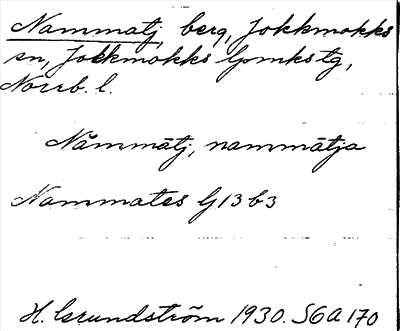 Nammatj, berg, Jokkmokks
sn, Jokkmokks lpmkstg,
Norrb. l.
Nåmmātj, nammātja
Nammates G13b3
H. Grundström 1930. SGA 170